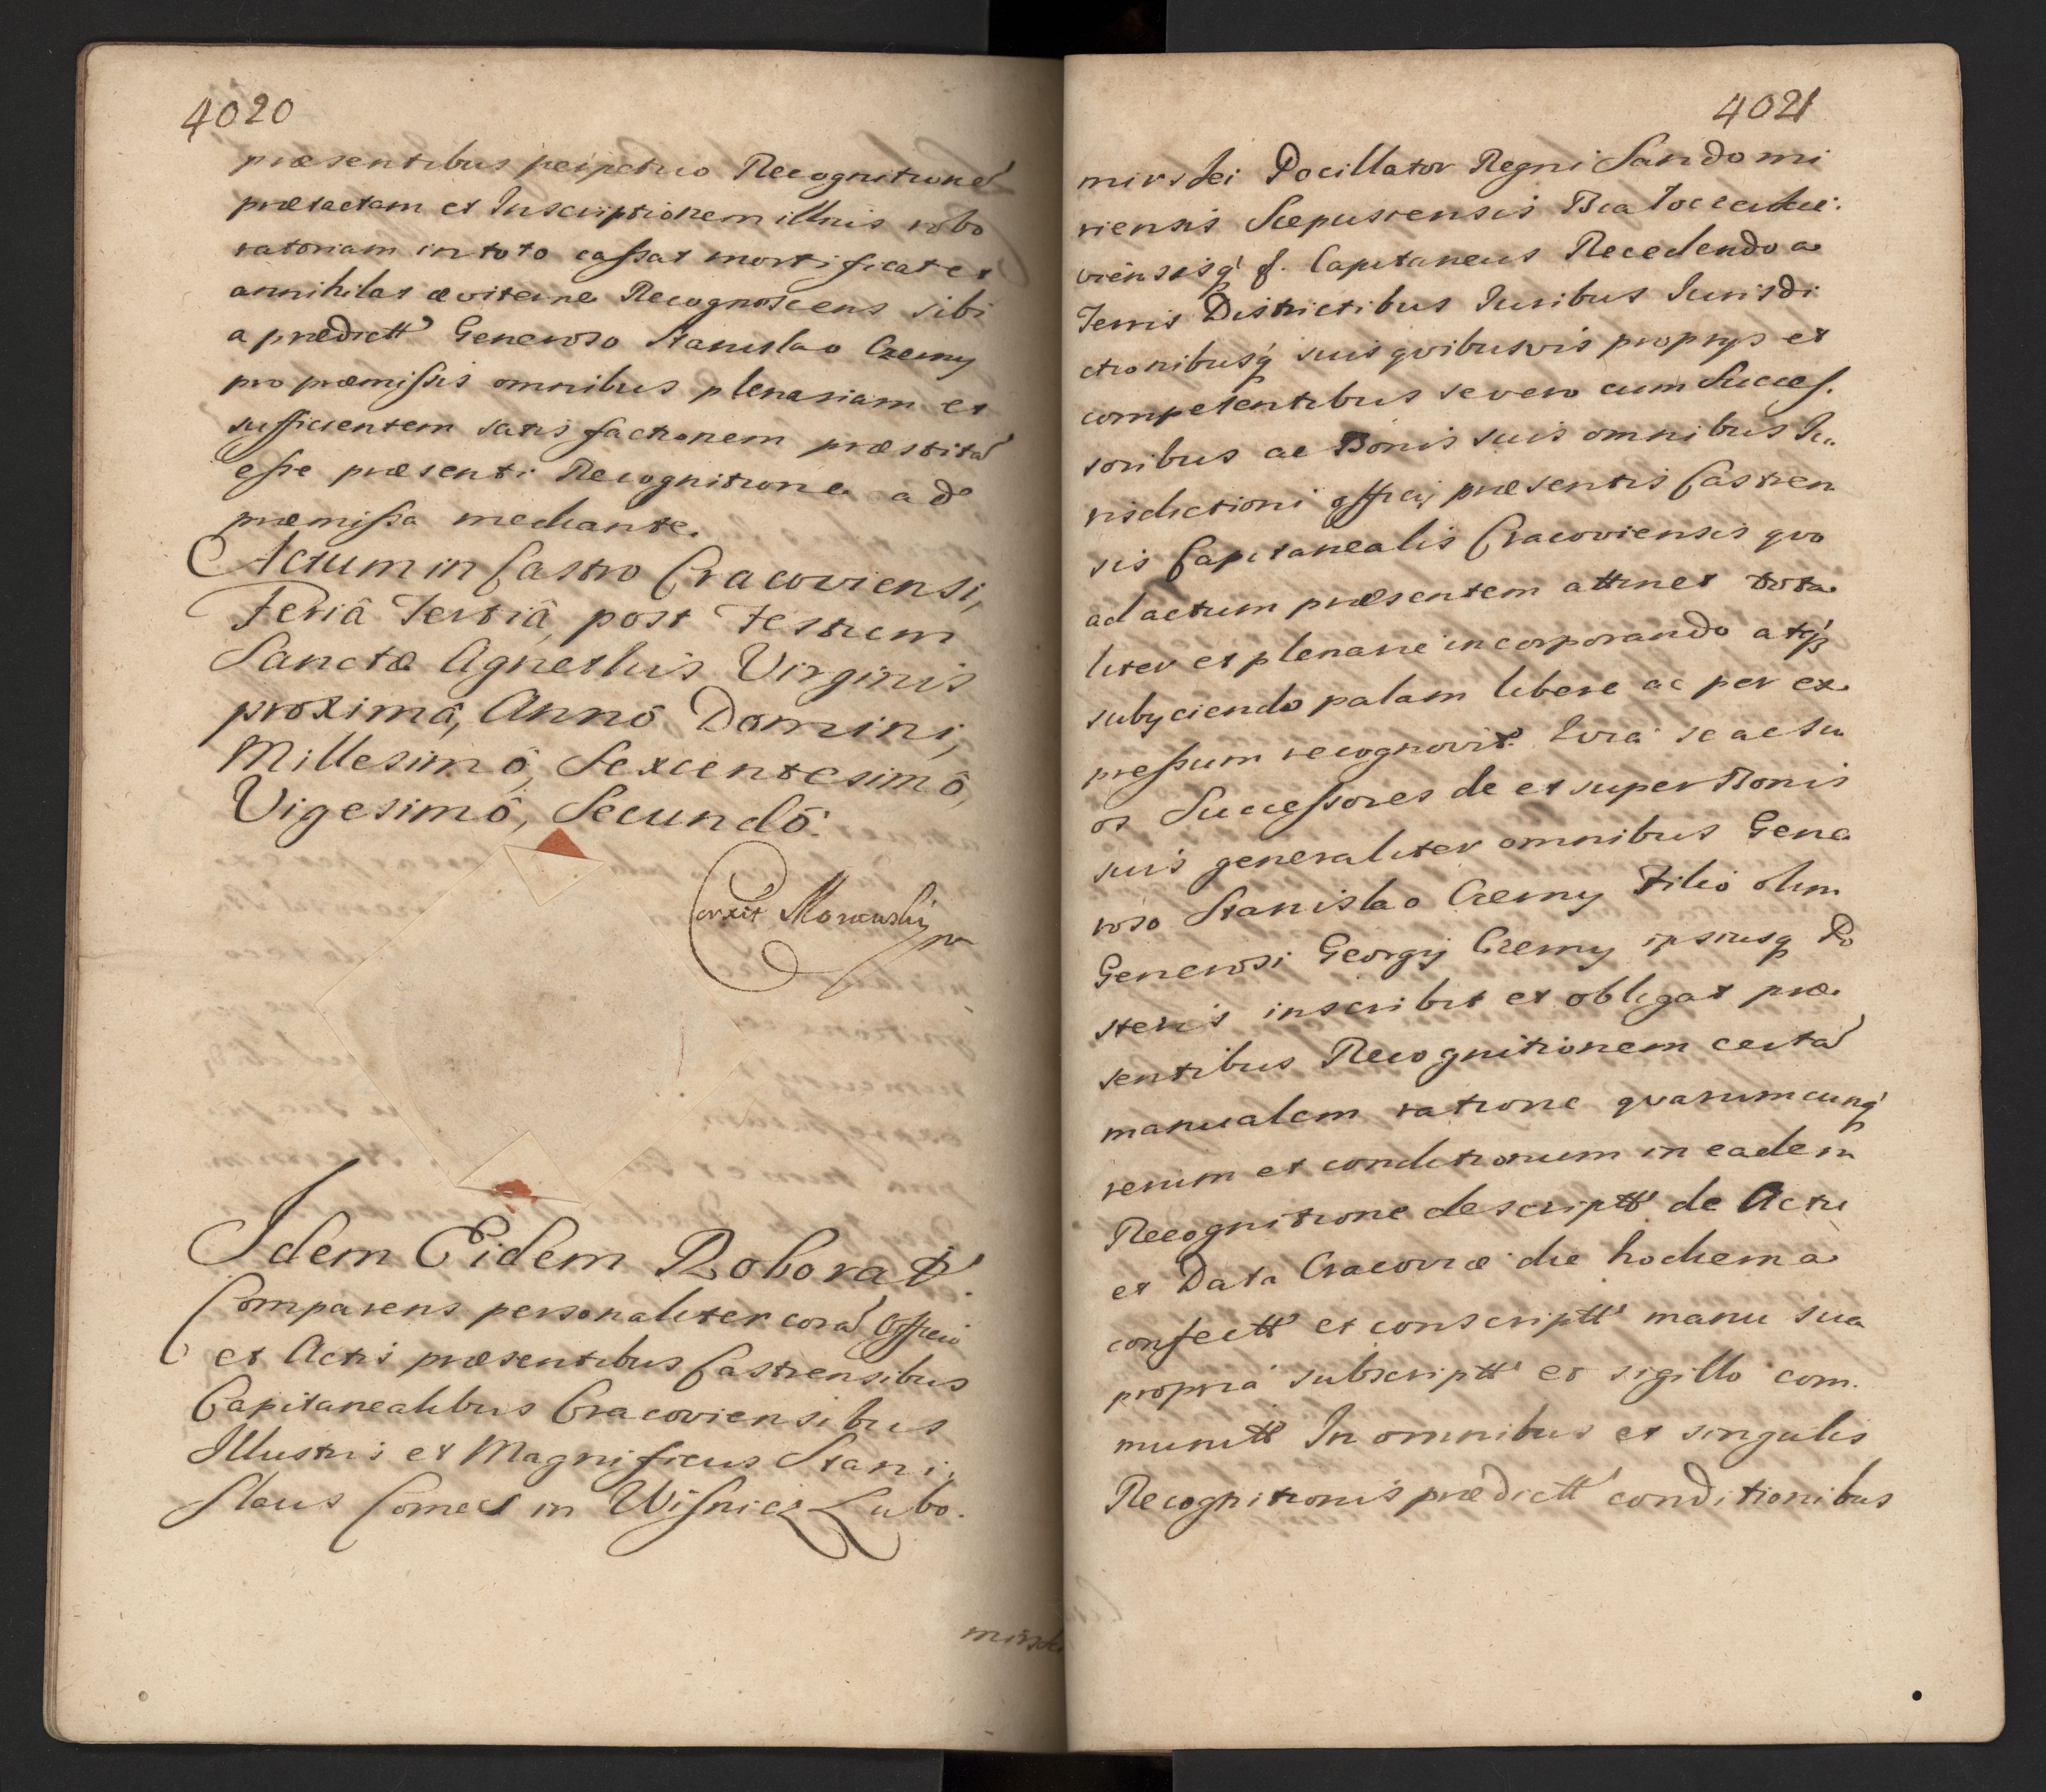 4020
præsentibus perpetuo Recognitione͂
prætactam et Inscriptionem illius robo
ratoriam in toto cassat mortificat et
annihilat æviterne Recognoscens sibi
a prædictt͂ Generoso Stanislao Czerny
pro præmissis omnibus plenariam et
sufficientem satisfactionem præstita͂
esse præsenti Recognitione ad
præmissa mediante.
Actum in Castro Cracoviensi,
Feriâ Tertiâ, post Festum
Sanctæ Agnethis Virginis
proximâ, Annô Domini,
Millesimô, Sexcentesimô,
Vigesimô, Secundô.
Corxit Morawski
Idem Eidem Roborat.
Comparens personaliter cora͂ Officio
et Actis præsentibus Castrensibus
Capitanealibus Cracoviensibus
Illustris et Magnificus Stani:
slaus Comes in Wisnicz Lubo.
mirski
4021
mirski Pocillator Regni Sandomi
riensis Scepusiensis Białocerkie:
viensisq́ &. Capitaneus Recedendo a
Terris Districtibus Iuribus Iurisdi
ctionibusq́ suis qvibusvis proprys et
competentibus se vero cum Succes.
soribus ac Bonis suis omnibus Iu.
risdictioni officij præsentis Castren
sis Capitanealis Cracoviensis qvo
ad actum præsentem attinet tota
liter et plenarie incorporando atq́
subyciendo palam libere ac per ex
pressum recognovit. Qvia se ac su
os Successores de et super Bonis
suis generaliter omnibus Gene
roso Stanislao Czerny Filio olim
Generosi Georgij Czerny ipsiusq́ Po
steris inscribit et obligat præ
sentibus Recognitionem certa͂
manualem ratione qvarumcunq́
rerum et conditionum in eadem
Recognitione descriptt͂ de Actu
et Data Cracoviæ die hodierna
confectt͂ et conscriptt͂ manu sua
propria subscriptt͂ et sigillo com.
munitt͂ In omnibus et singulis
Recognitionis prædictt͂ conditionibus